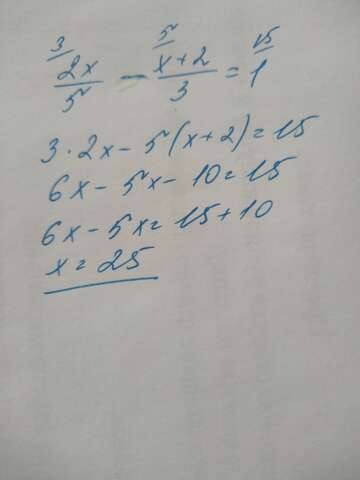 3 5 15
2x/5 - x+2/3 = 1
3 · 2x - 5(x+2) = 15
6x - 5x - 10 = 15
6x - 5x = 15 + 10
x = 25